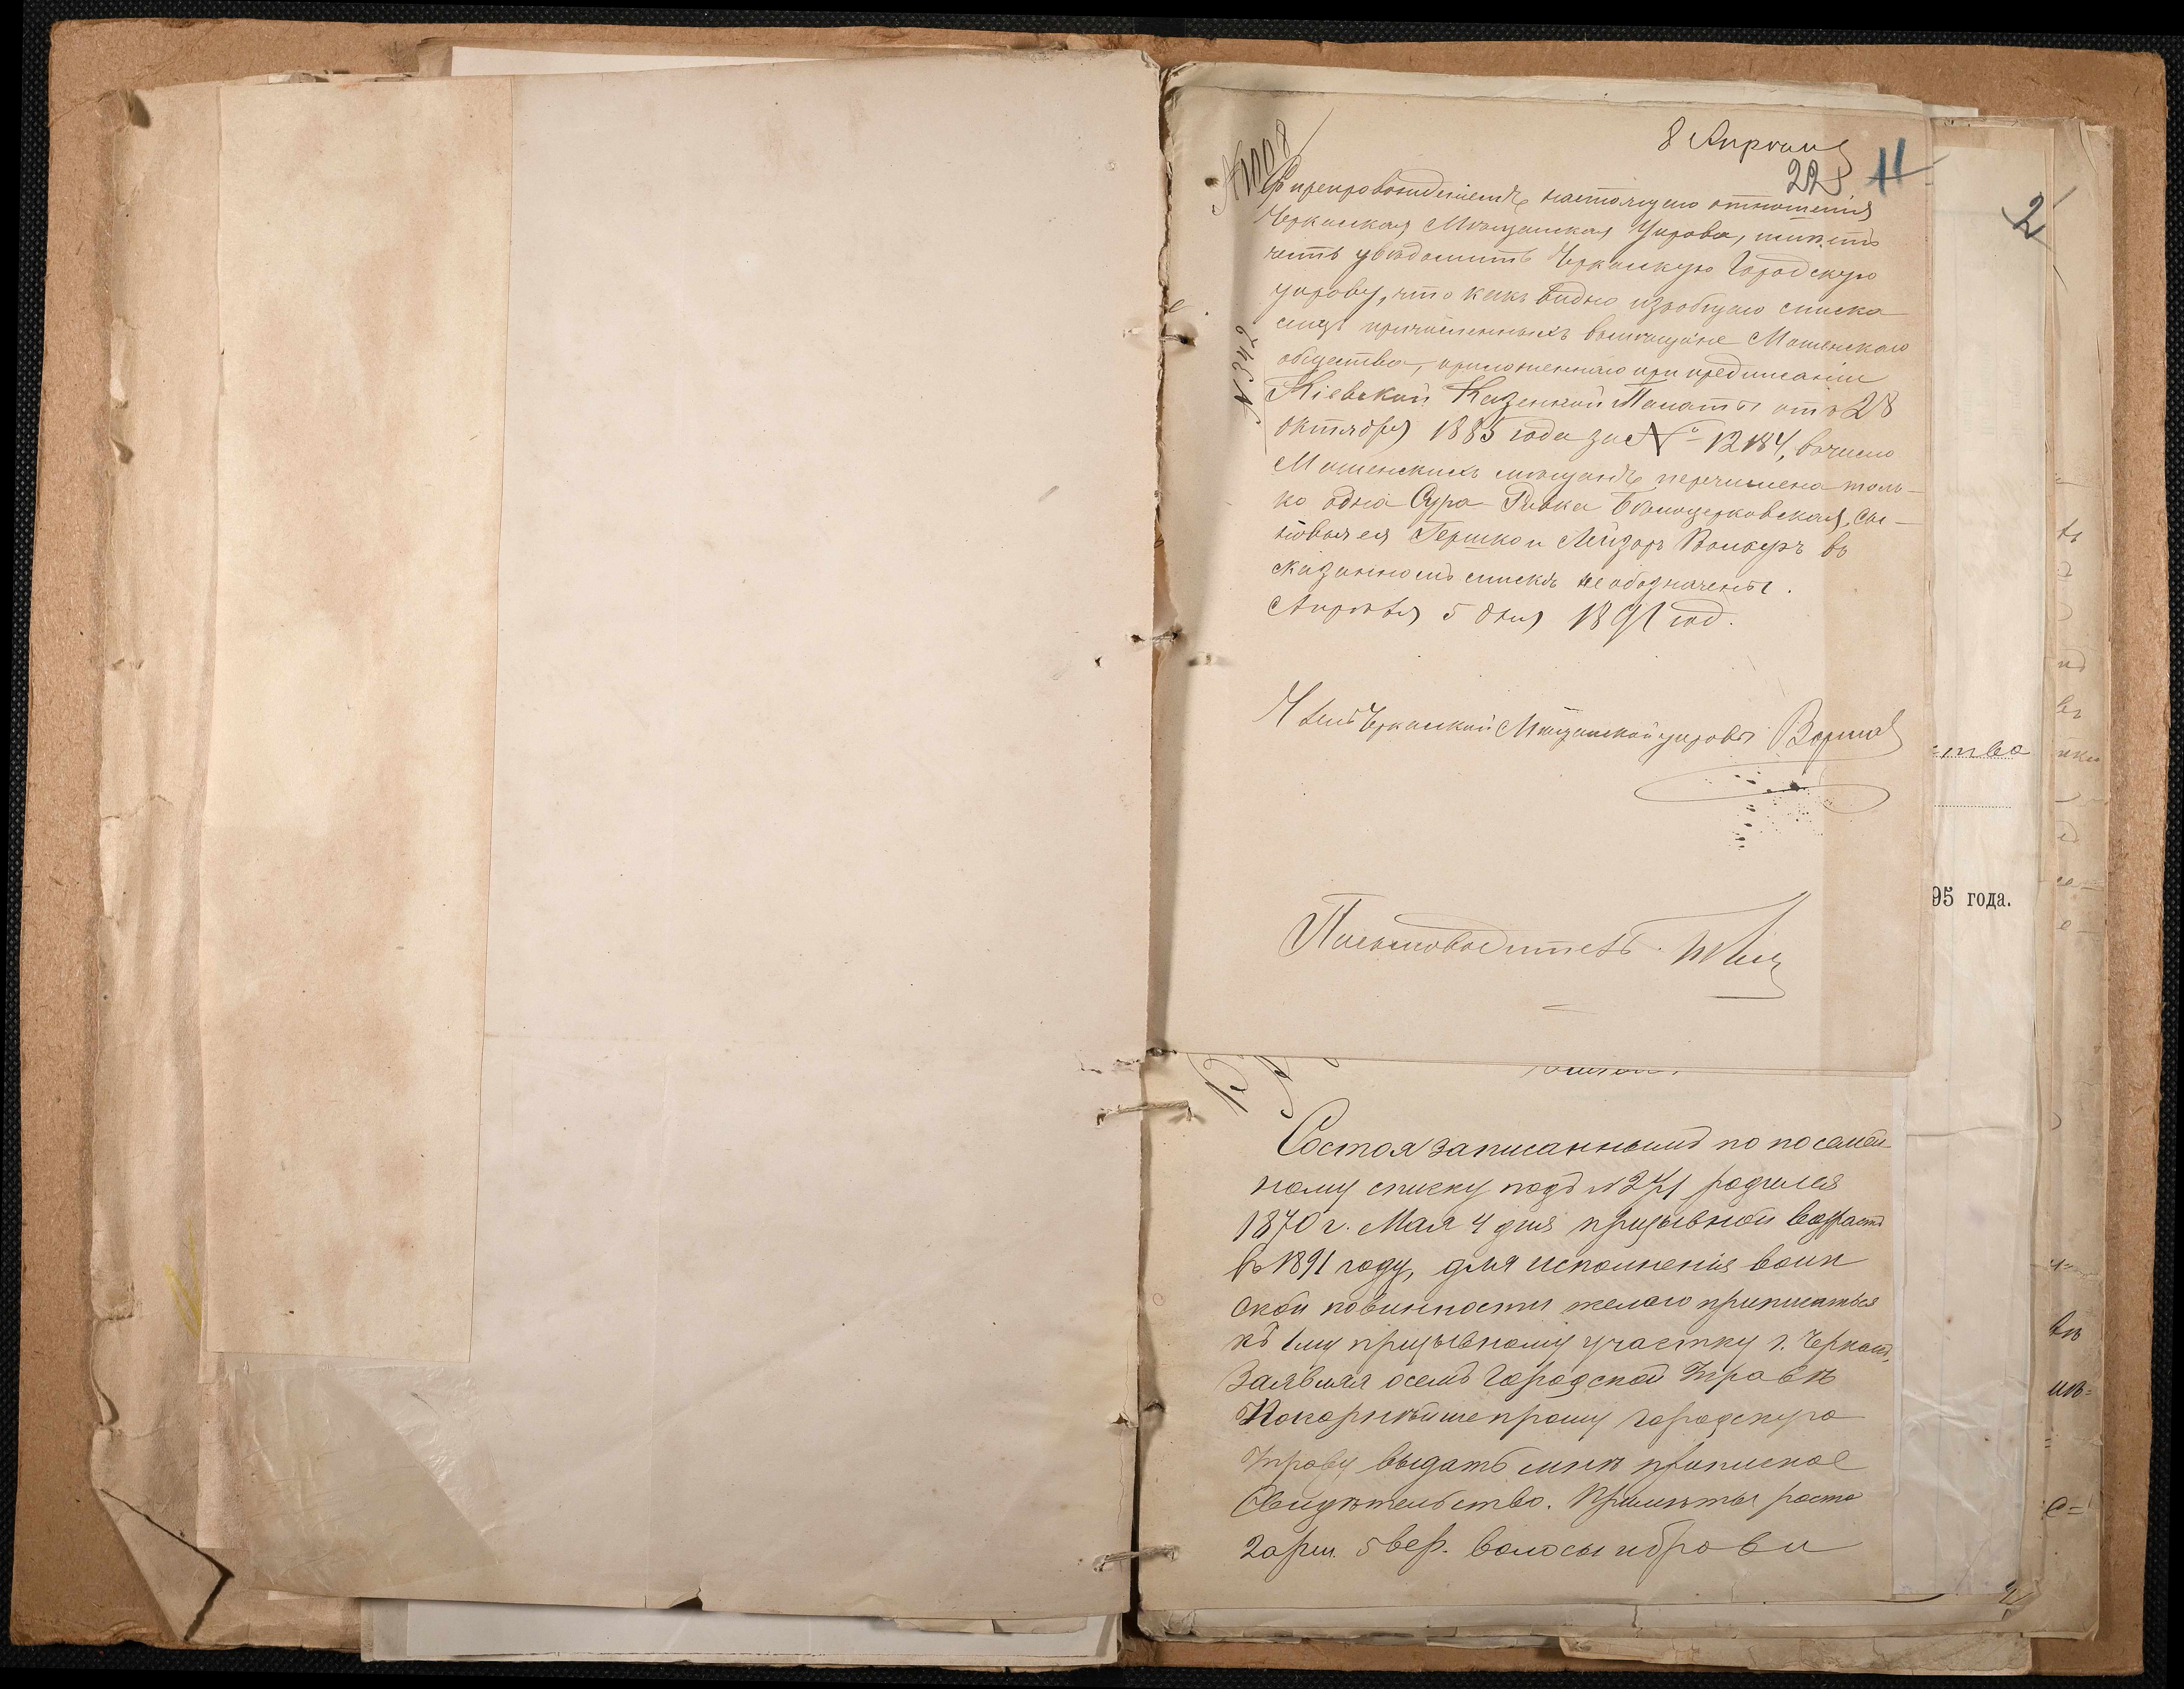 8 Апреля
228 11
№ 1008
№ 342
Съ препровожденіемъ настоящаго отношенія
Черкасская Мѣщанская Управа, имѣетъ
честь увѣдомить Черкасскую Городскую
управу, что какъ видно изъ общаго списка
лицъ причисленныхъ въ мѣщане Мошенскаго
общества, приложеннаго при предписаніи
Кіевской Казенной Палаты отъ 28
октября 1885 года за № 12184, въ число
Мошенскихъ мѣщанъ перечислена толь-
ко одна Сура-Ривка Бѣлоцерковская, сы-
новья ея Гершко и Лейзоръ Волькъ въ
сказанномъ спискѣ не обозначены.
Апрѣля 5 дня 1891 год.
Членъ Черкасской Мѣщанской управы
Письмоводитель
Состоя записаннымъ по посемей-
ному списку подъ № 271 родился
1870 г. Мая 4 дня призывной возрастъ
въ 1891 году, для исполненія воин
ской повинности желаю приписаться
къ 1му призывному участку г. Черкасъ,
Заявляя о семъ Городской Управѣ
Покорнѣйше прошу городскую
Управу выдать мнѣ приписное
Свидѣтельство. Примѣты роста
2 арш. 5 вер. волосы и брови
2
ства
95 года.